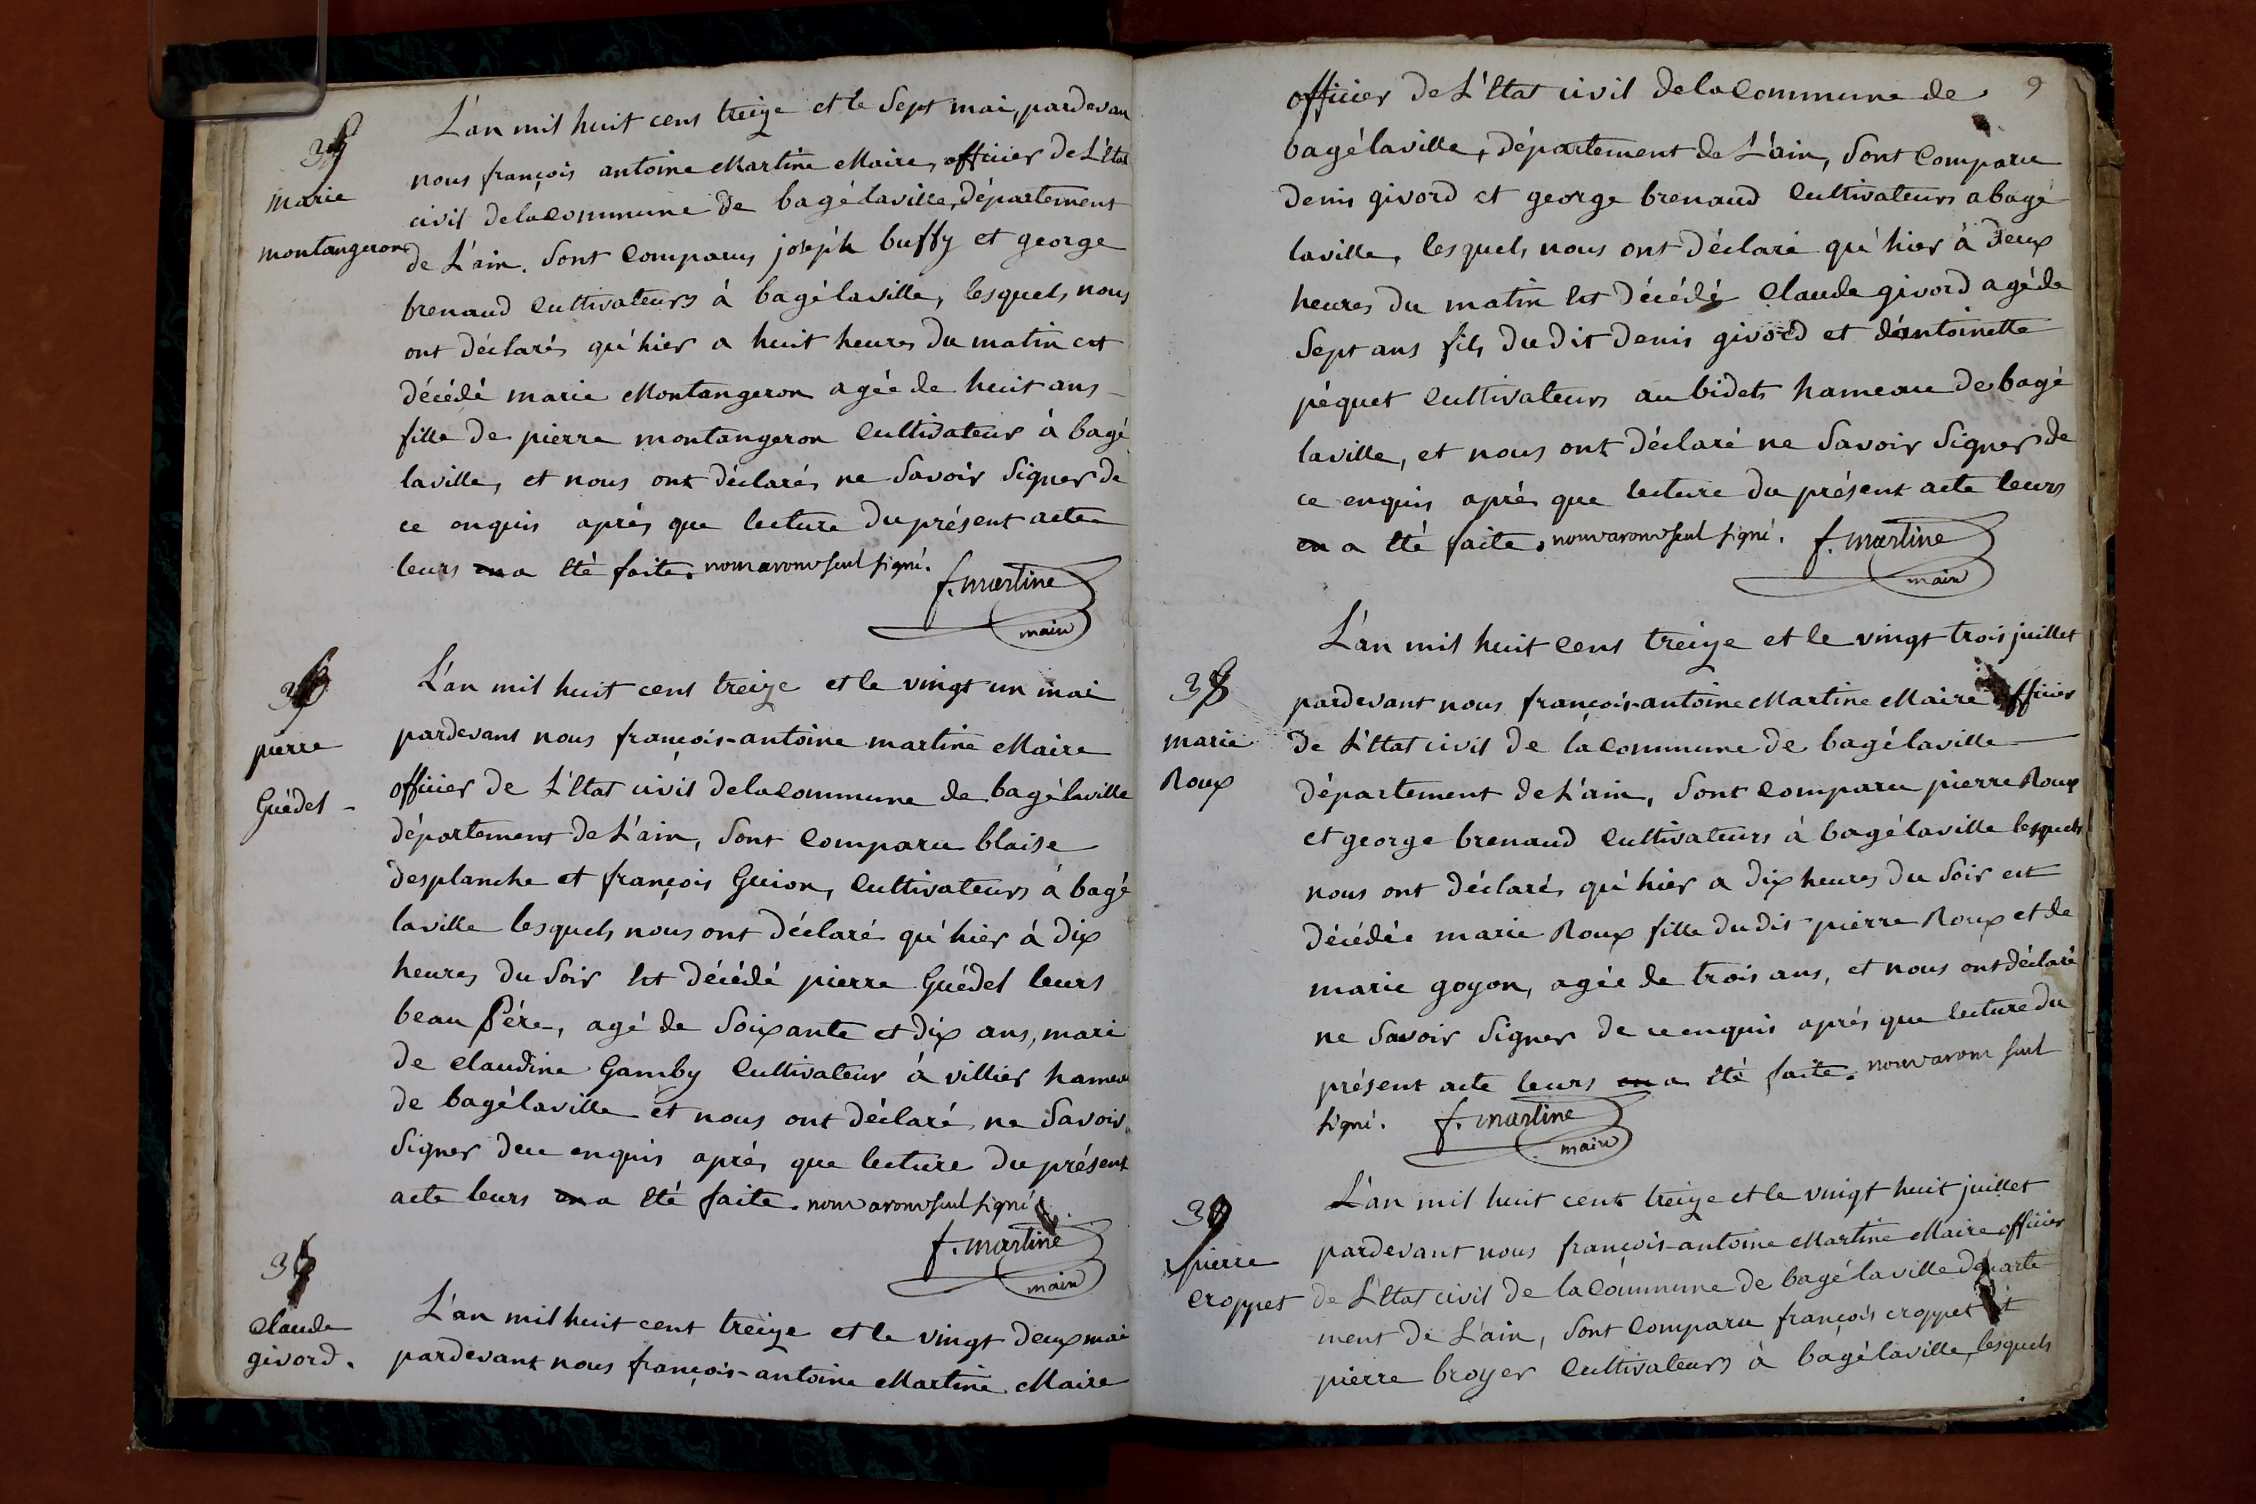 35
marie
montangeron
L'an mil huit cens treize et le Sept mai, pardevan
nous françois antoine Martine Maire, officier de L'Etat
civil dela Commune de bagé laville, département
de L'ain. Sont Comparus joséph buffy et george
brenaud Cultivateurs à bagé laville, lesquels nous
ont déclarés qu'hier a huit heures du matin est
décédé marie Montangeron agée de huit ans
fille de pierre montangeron Cultivateur à bagé
laville, et nous ont déclarés ne Savoir Signer de
ce enquis après que lecture du présent acte
leurs en a été faite. nous avons seul signé.
f. martine
maire
36
pierre
Guédel
L'an mil huit cent treize et le vingt un mai
pardevant nous francois-antoine martine Maire
officier de L'Etat civil dela Commune de bagé laville
département de L'ain, Sont Comparu blaise
desplanche et françois Guion, Cultivateurs à bagé
laville lesquels nous ont déclaré qu'hier à dix
heures du Soir Est décédé pierre Guédel leurs
beau Pére, agé de Soixante et dix ans, mari
de Claudine Gamby Cultivateur à villier hameau
de bagé laville et nous ont déclaré ne Savoir
Signer dece enquis après que lecture du présent
acte leurs en a été faite. nous avons seul signé.
f. martine
maire
37
Claude
givord.
L'an mil huit cent treize et le vingt deux mai
pardevant nous françois-antoine Martine Maire
9
officier de L'Etat civil dela Commune de
bagé laville, département de L'ain, Sont Comparu
denis givord et george brenaud Cultivateurs a bagé
laville, lesquels nous ont déclaré qu'hier à deux
heures du matin Est décédé Claude givord agé de
Sept ans fils du dit denis givord et d'antoinette
péquet Cultivateurs au bidets hameau de bagé
laville, et nous ont déclaré ne Savoir Signer de
ce enquis après que lecture du présent acte leurs
en a été faite. nous avons seul signé. f. martine
maire
38
marie
Roux
L'an mil huit cens treize et le vingt trois juillet
pardevant nous françois-antoine Martine Maire officier
de L'Etat civil de la Commune de bagé laville
département de L'ain, Sont Comparu pierre Roux
et george brenaud Cultivateurs à bagé laville lesquels
nous ont déclarés qu'hier a dix heures du Soir est
décédée marie Roux fille du dit pierre Roux et de
marie goyon, agée de trois ans, et nous ont déclaré
ne Savoir Signer de ce enquis après que lecture du
présent acte leurs en a été faite. nous avons seul
signé. f. martine
maire
39
pierre
Croppet
L'an mil huit cent treize et le vingt huit juillet
pardevant nous françois-antoine Martine Maire officier
de L'Etat civil de la Commune de bagé laville départe
ment de L'ain, Sont Comparu françois croppet et
pierre broyer Cultivateurs à bagé laville, lesquels